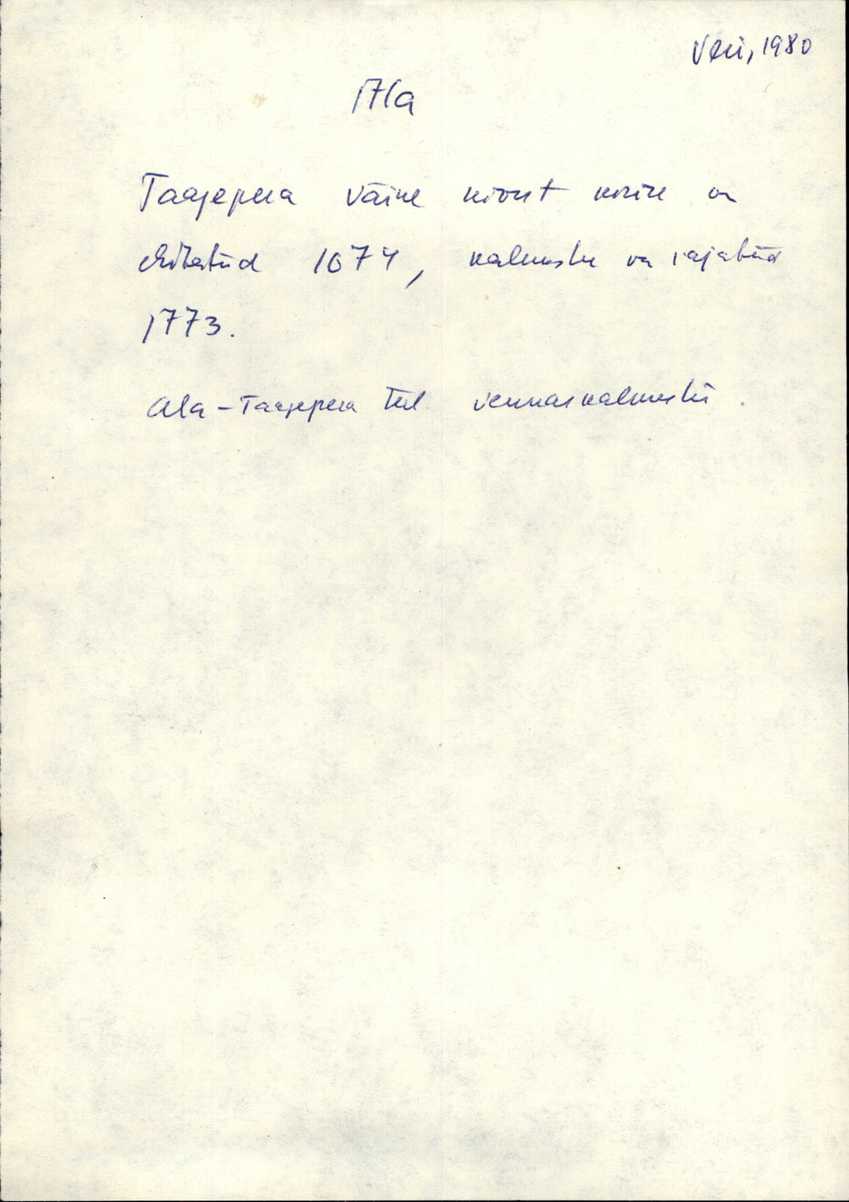 1980
Ala
Taagepera väike kivist kirik on
ehitatud 1674, kalmistu on rajatud
1773.
Ala-Taagepera teel vennaskalmistu.